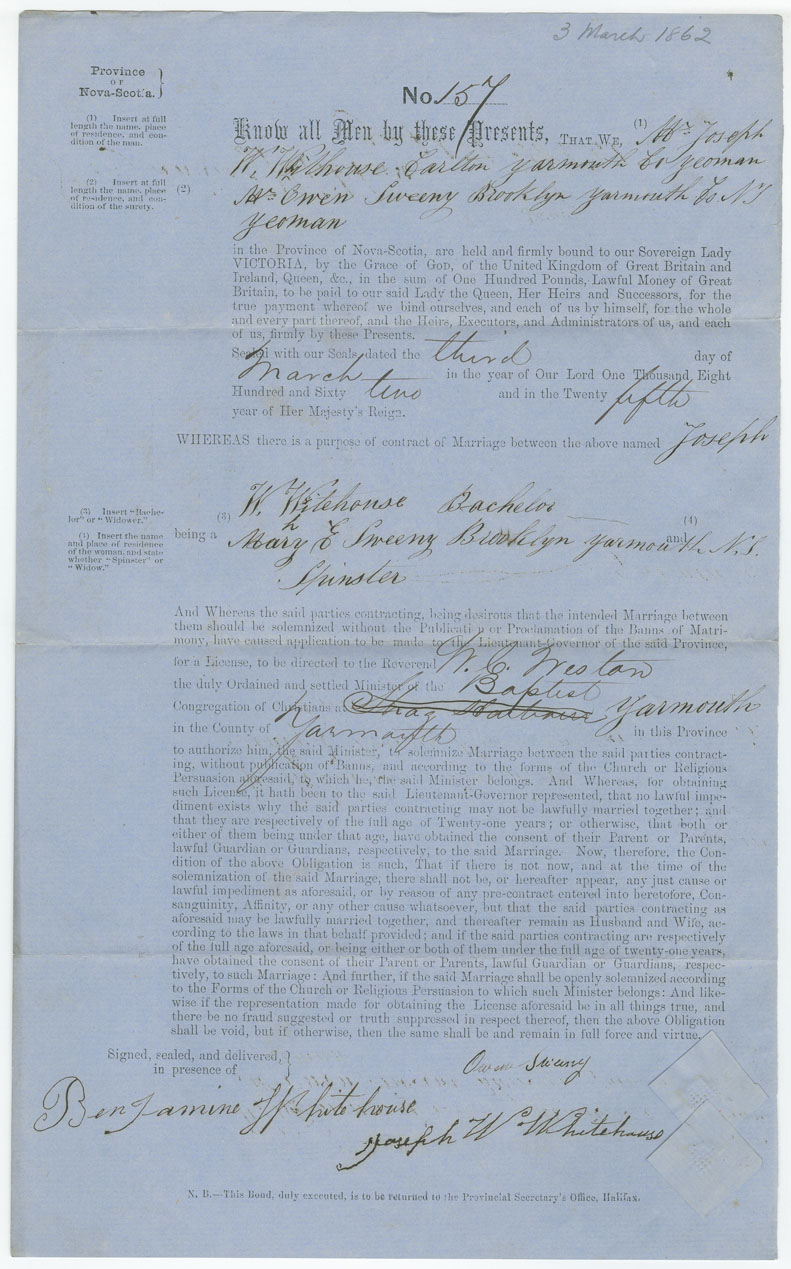 3 March 1862
Province
OF
Nova-Scotia.
No. 157
(1) Insert at full
length the name, place
of residence, and con-
dition of the man.
Know all Men by these Presents, THAT WE, (1) Mr. Joseph
W. Whitehouse Carlton Yarmouth Co yeoman
(2) Insert at full
length the name, place
of residence, and con-
dition of the surety.
(2) Mr Owen Sweeny Brooklyn Yarmouth Co N S
yeoman
in the Province of Nova-Scotia, are held and firmly bound to our Sovereign Lady
VICTORIA, by the Grace of GOD, of the United Kingdom of Great Britain and
Ireland, Queen, &c., in the sum of One Hundred Pounds, Lawful Money of Great
Britain, to be paid to our said Lady the Queen, Her Heirs and Successors, for the
true payment whereof we bind ourselves, and each of us by himself, for the whole
and every part thereof, and the Heirs, Executors, and Administrators of us, and each
of us, firmly by these Presents.
Sealed with our Seals, dated the third day of
March in the year of Our Lord One Thousand Eight
Hundred and Sixty two and in the Twenty fifth
year of Her Majesty's Reign.
WHEREAS there is a purpose of contract of Marriage between the above named Joseph
(3) Insert "Bache-
lor" or "Widower."
W. Whitehouse Bachelor
(4) Insert the name
and place of residence
of the woman, and state
whether "Spinster" or
"Widow."
being a (3) and (4) Mary E Sweeny Brooklyn Yarmouth N.S.
Spinster
And Whereas the said parties contracting, being desirous that the intended Marriage between
them should be solemnized without the Publicati n or Proclamation of the Banns of Matri-
mony, have caused application to be made to the Lieutenant-Governor of the said Province,
for a License, to be directed to the Reverend W. C. Weston
the duly Ordained and settled Minister of the Baptist
Congregation of Christians at Yarmouth
in the County of Yarmouth in this Province
to authorize him, the said Minister, to solemnize Marriage between the said parties contract-
ing, without publication of Banns, and according to the forms of the Church or Religious
Persuasion aforesaid, to which he, the said Minister belongs. And Whereas, for obtaining
such License, it hath been to the said Lieutenant-Governor represented, that no lawful impe-
diment exists why the said parties contracting may not be lawfully married together; and
that they are respectively of the full age of Twenty-one years; or otherwise, that both or
either of them being under that age, have obtained the consent of their Parent or Parents,
lawful Guardian or Guardians, respectively, to the said Marriage. Now, therefore, the Con-
dition of the above Obligation is such, That if there is not now, and at the time of the
solemnization of the said Marriage, there shall not be, or hereafter appear, any just cause or
lawful impediment as aforesaid, or by reason of any pre-contract entered into heretofore, Con-
sanguinity, Affinity, or any other cause whatsoever, but that the said parties contracting as
aforesaid may be lawfully married together, and thereafter remain as Husband and Wife, ac-
cording to the laws in that behalf provided; and if the said parties contracting are respectively
of the full age aforesaid, or being either or both of them under the full age of twenty-one years,
have obtained the consent of their Parent or Parents, lawful Guardian or Guardians, respec-
tively, to such Marriage: And further, if the said Marriage shall be openly solemnized according
to the Forms of the Church or Religious Persuasion to which such Minister belongs: And like-
wise if the representation made for obtaining the License aforesaid be in all things true, and
there be no fraud suggested or truth suppressed in respect thereof, then the above Obligation
shall be void, but if otherwise, then the same shall be and remain in full force and virtue.
Signed, sealed, and delivered,
in presence of
Owen Sweeny
Benjamine Whitehouse
Joseph W Whitehouse
N. B.—This Bond, duly executed, is to be returned to the Provincial Secretary's Office, Halifax.